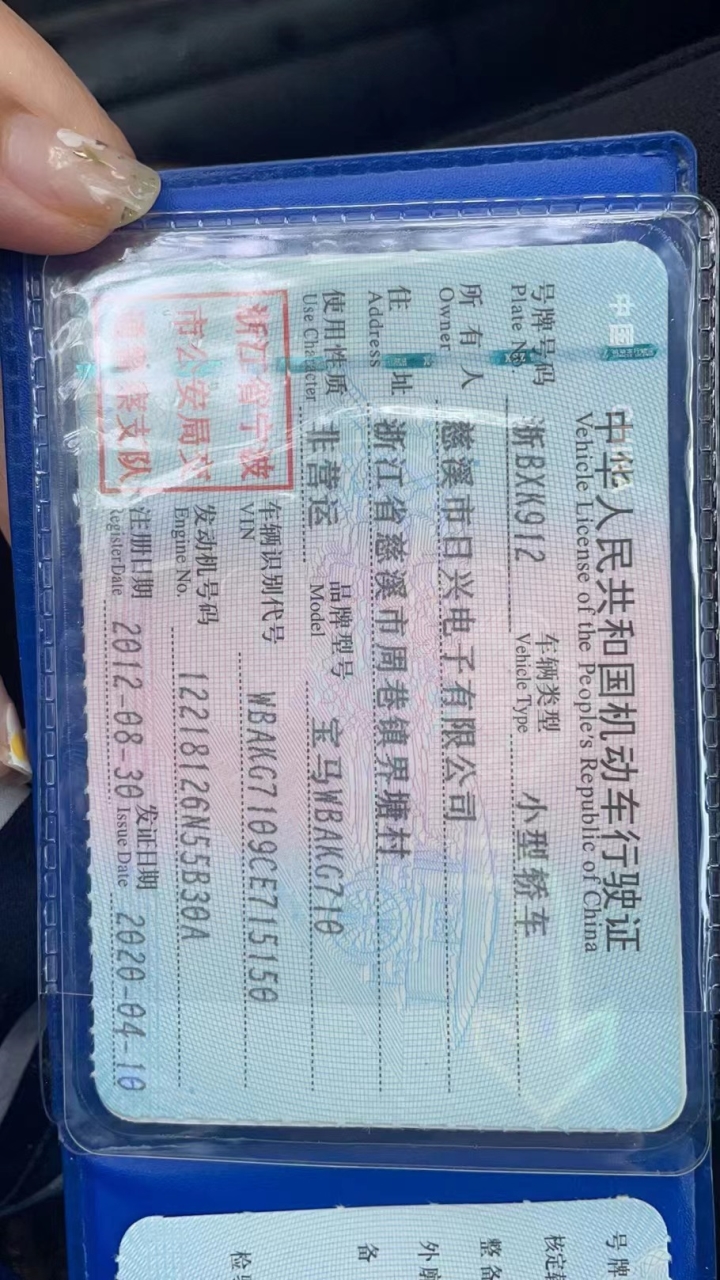 中华人民共和国机动车行驶证
Vehicle License of the People's Republic of China
号牌号码 浙BXK912 车辆类型 小型轿车
Plate No. Vehicle Type
所有人 慈溪市日兴电子有限公司
Owner
住址 浙江省慈溪市周巷镇界塘村
Address
使用性质 非营运 品牌型号 宝马WBAKG710
Use Character Model
浙江省宁波
市公安局交
通警察支队
车辆识别代号 WBAKG7109CE715150
VIN
发动机号码 12218126N55B30A
Engine No.
注册日期 2012-08-30 发证日期 2020-04-10
Register Date Issue Date
中国
号牌
核定
整备
外廓
备
检验